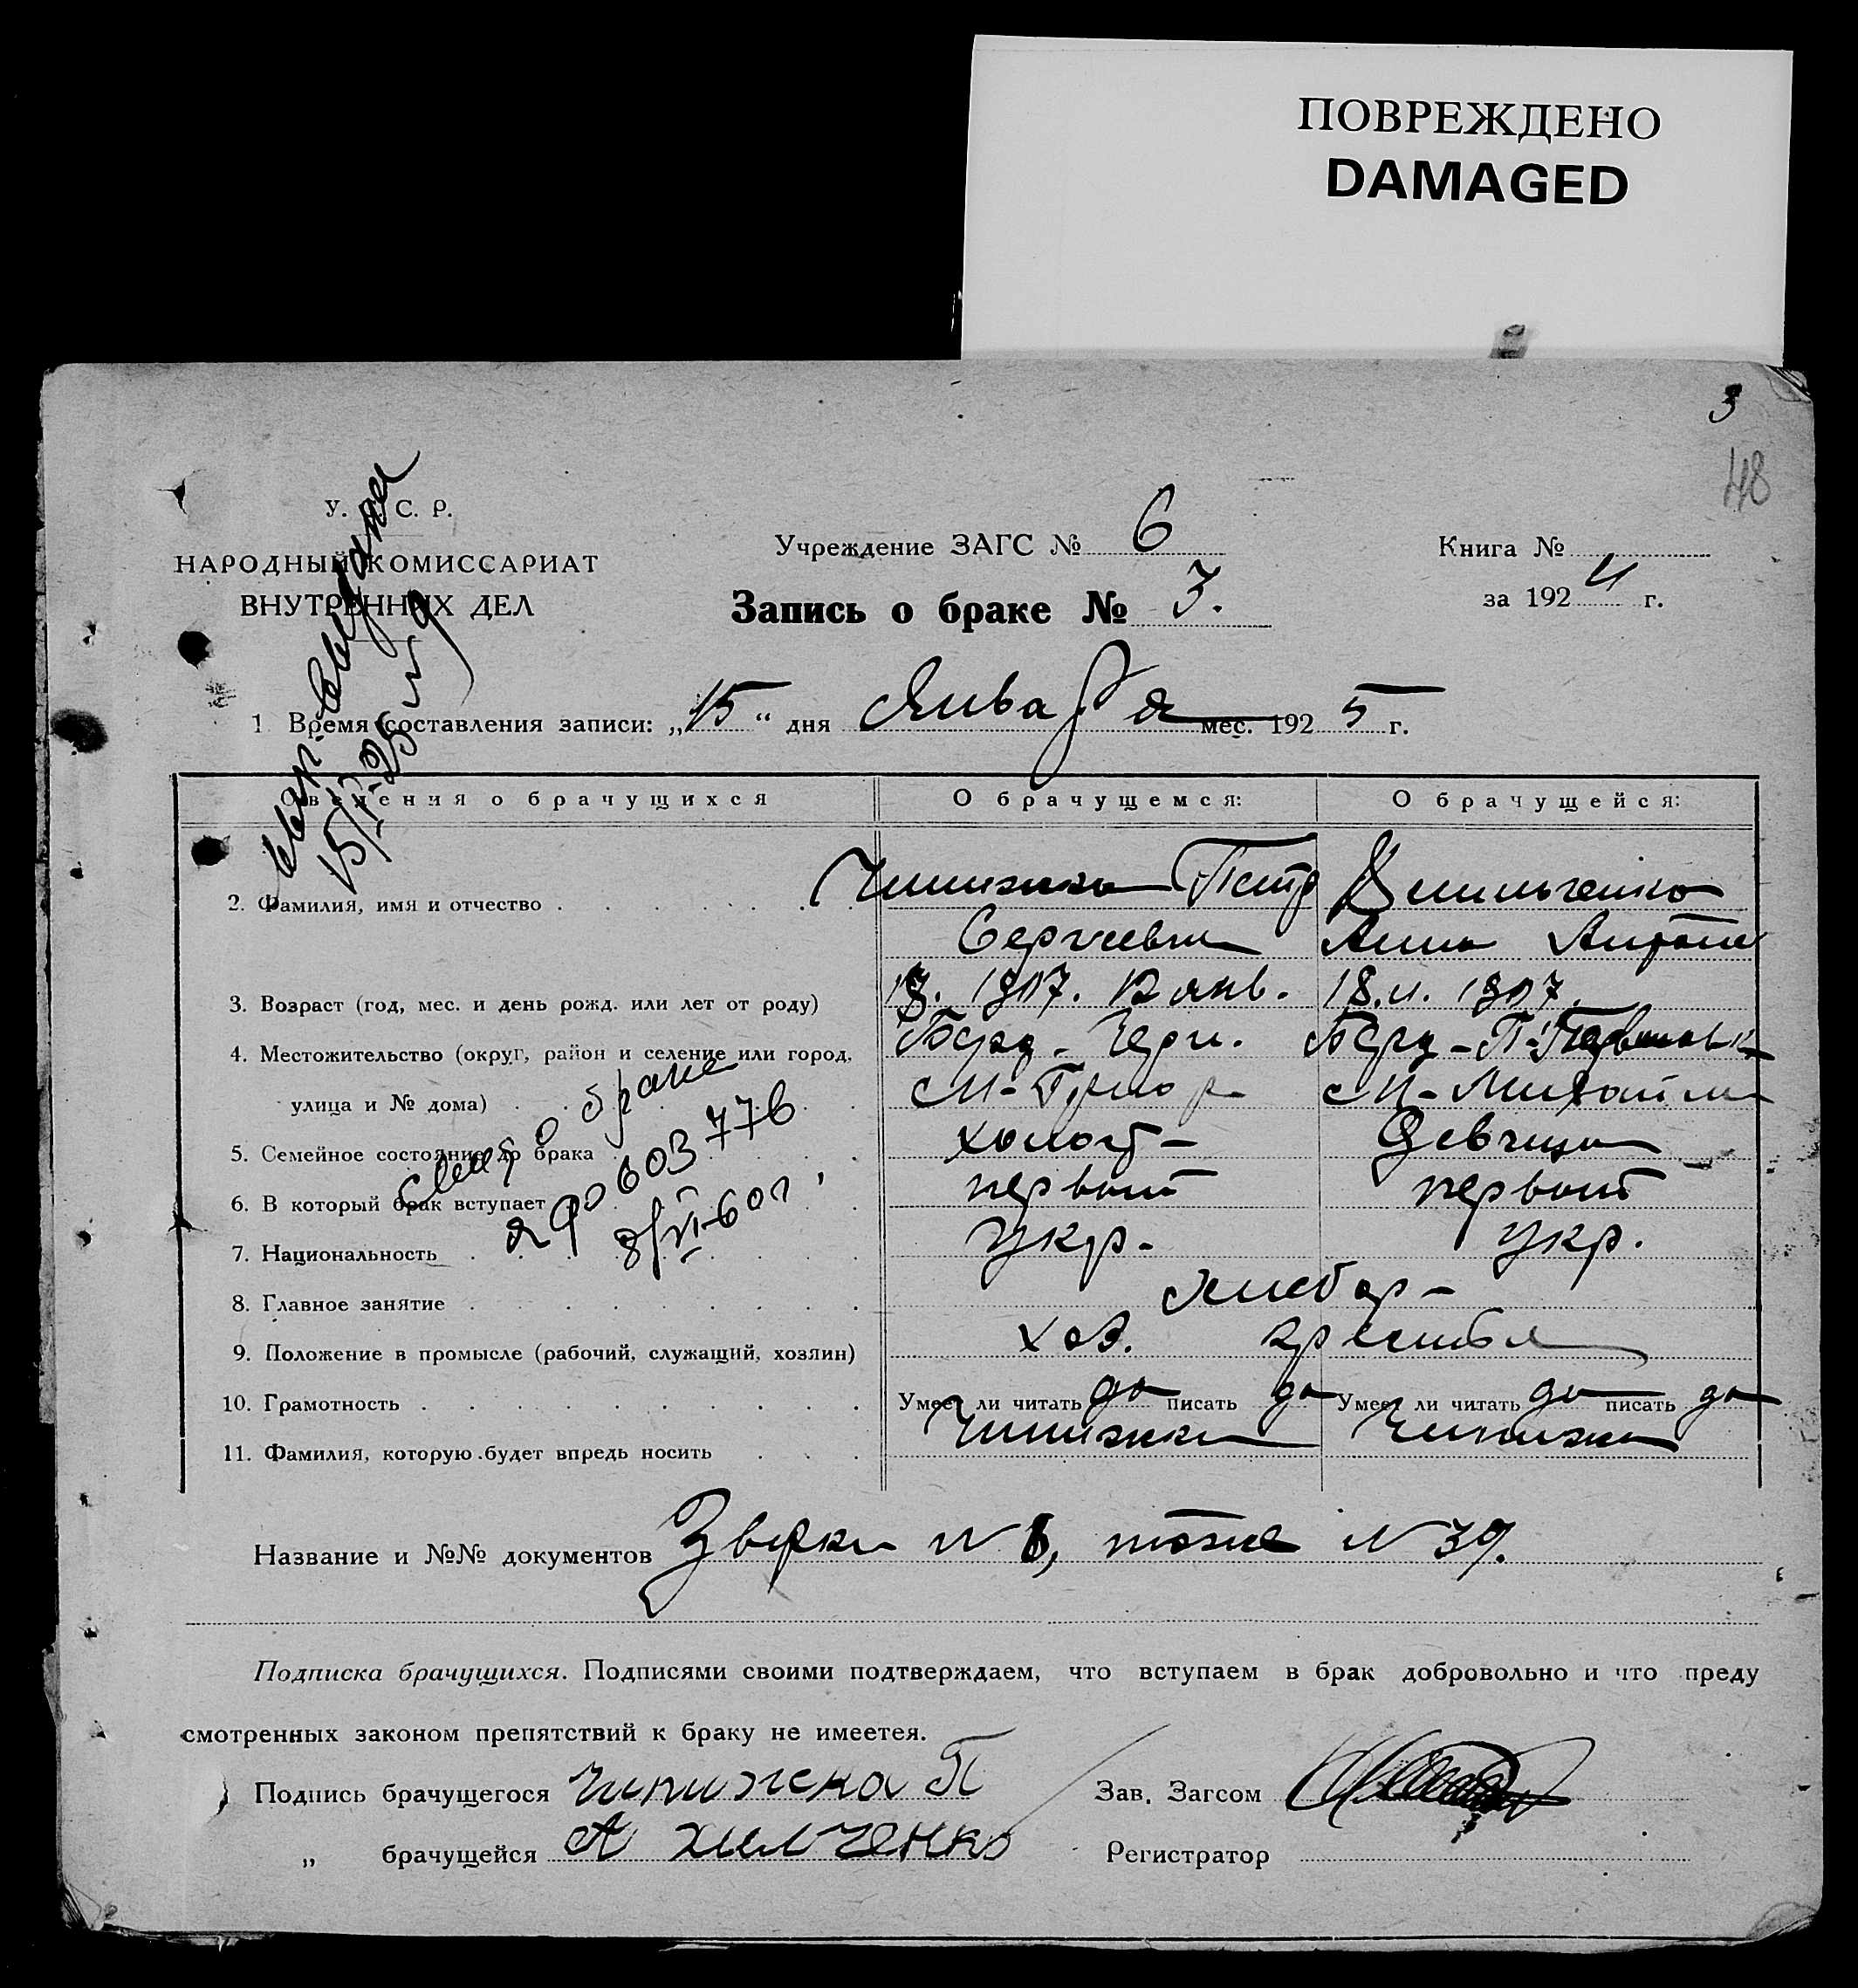 ПОВРЕЖДЕНО
DAMAGED
3
48
У. С. Р.
НАРОДНЫЙ КОМИССАРИАТ
ВНУТРЕННИХ ДЕЛ
Учреждение ЗАГС № 6
Запись о браке № 3.
Книга №
за 1924 г.
1 Время составления записи: „15“ дня Января мес. 1925 г.
Сведения о брачущихся
О брачущемся:
О брачущейся:
2. Фамилия, имя и отчество Чипижка Петр
Сергиевич Анна
3. Возраст (год, мес. и день рожд. или лет от роду) 1907. 12 янв. 18. 1907.
4. Местожительство (округ, район и селение или город, Берд- Черн. Берд-
улица и № дома)
5. Семейное состояние до брака холост- Девица
6. В который брак вступает первый первый
7. Национальность укр. укр.
8. Главное занятие хлебор-
9. Положение в промысле (рабочий, служащий, хозяин) хоз.
10. Грамотность Умеет ли читать да писать да Умеет ли читать да писать да
11. Фамилия, которую будет впредь носить Чипижка Чипижка
Свид о браке
603776
8/VI-60г.
Название и №№ документов № 6, тоже № 39.
Подписка брачущихся. Подписями своими подтверждаем, что вступаем в брак добровольно и что преду
смотренных законом препятствий к браку не имеетея.
Подпись брачущегося Чипижка П
Зав. Загсом
„ брачущейся А Хильченко
Регистратор